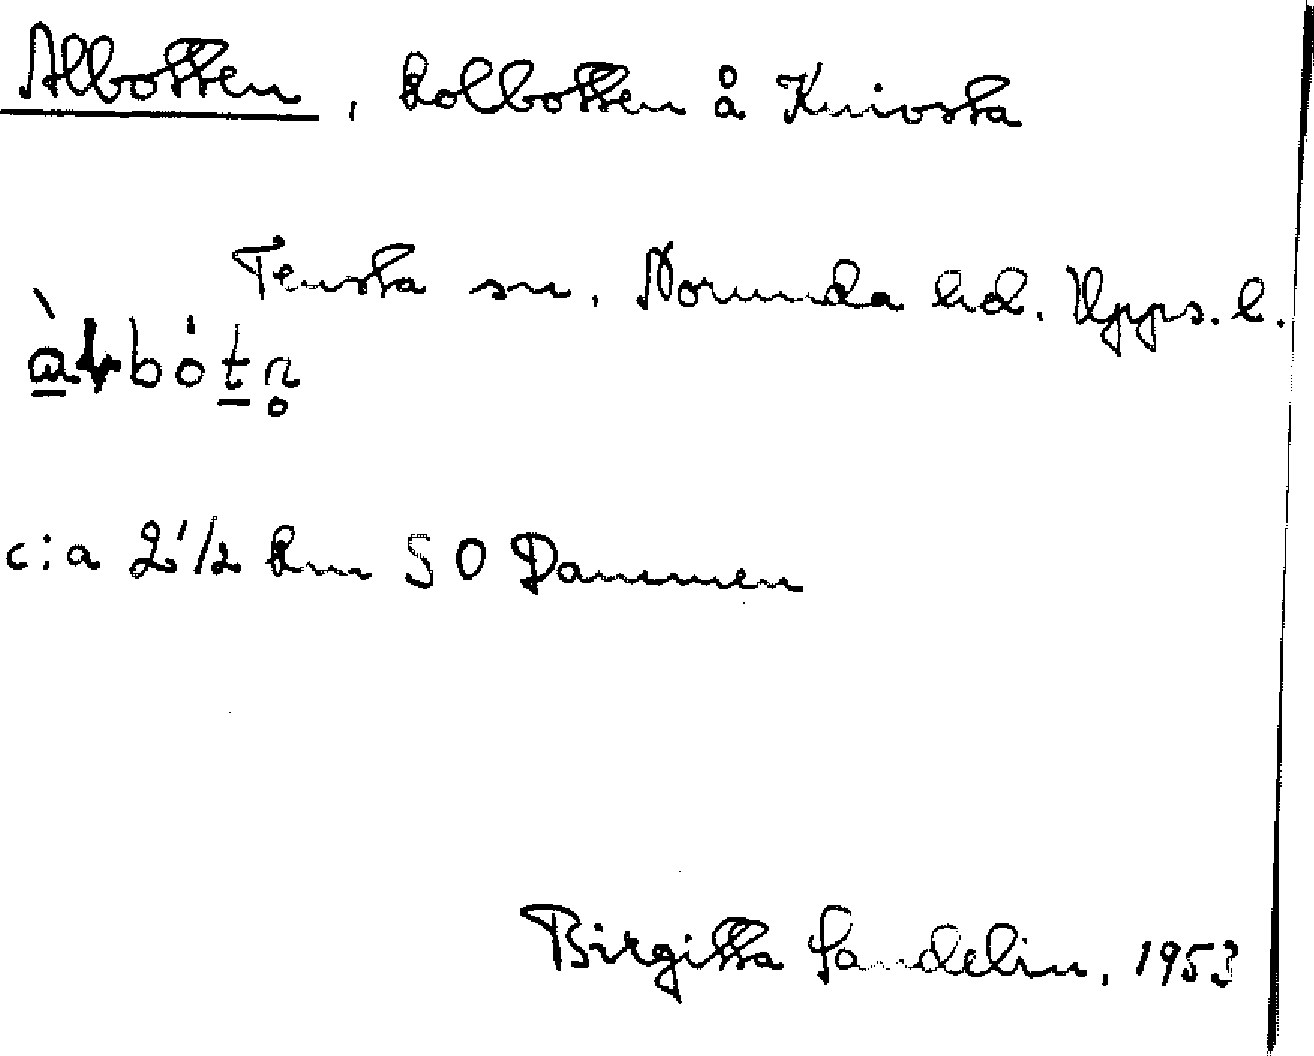 Albotten, kolbotten å Knivsta
Tensta sn. Norunda hd. Upps. l.
c:a 2 1/2 km SO Dammen
Birgitta Sandelin, 1953